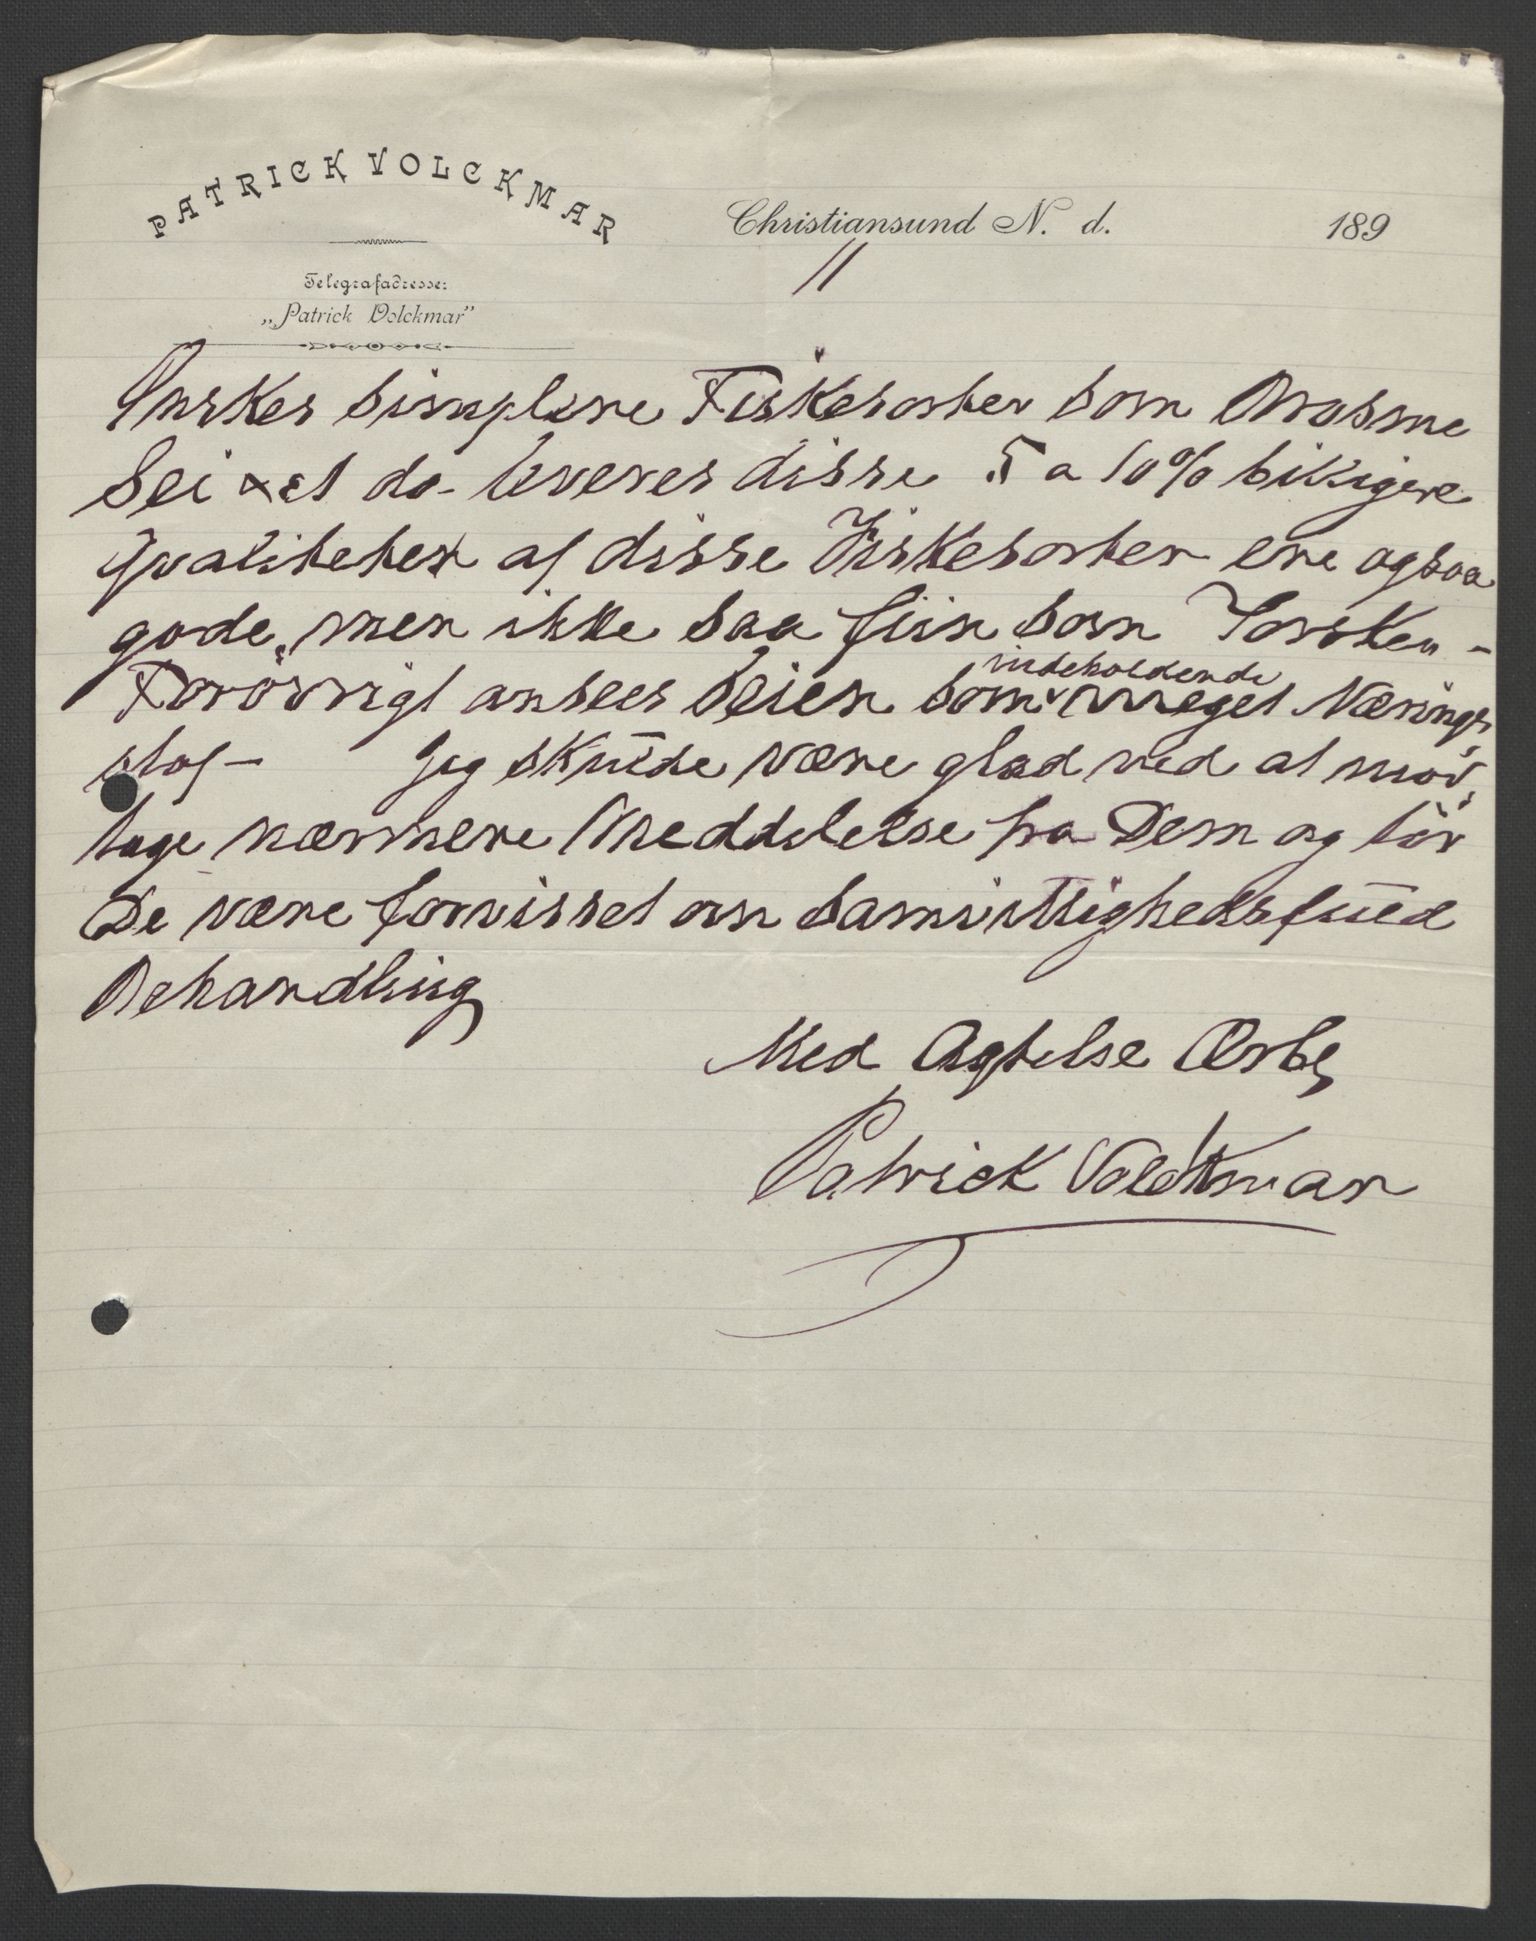 PATRICK VOLCKMAR
Telegrafadresse:
„Patrick Volckmar”
Christiansund N. d. 189
11
Ønskes simplere Fiskesorter som Brosme
Sei &ct da leveres disse 5 a 10% billigere
Qvaliteten af disse Fiskesorter ere ogsaa
gode, men ikke saa fiin som Torsken –
Forövrigt ansees Seien som indeholdende meget Nærings
stof – Jeg skulde være glad ved at mod,
tage nærmere Meddelelse fra Dem og tör
De være forvisset om samvittighedsfuld
Behandling
Med Agtelse Ærb,
Patrick Volckmar